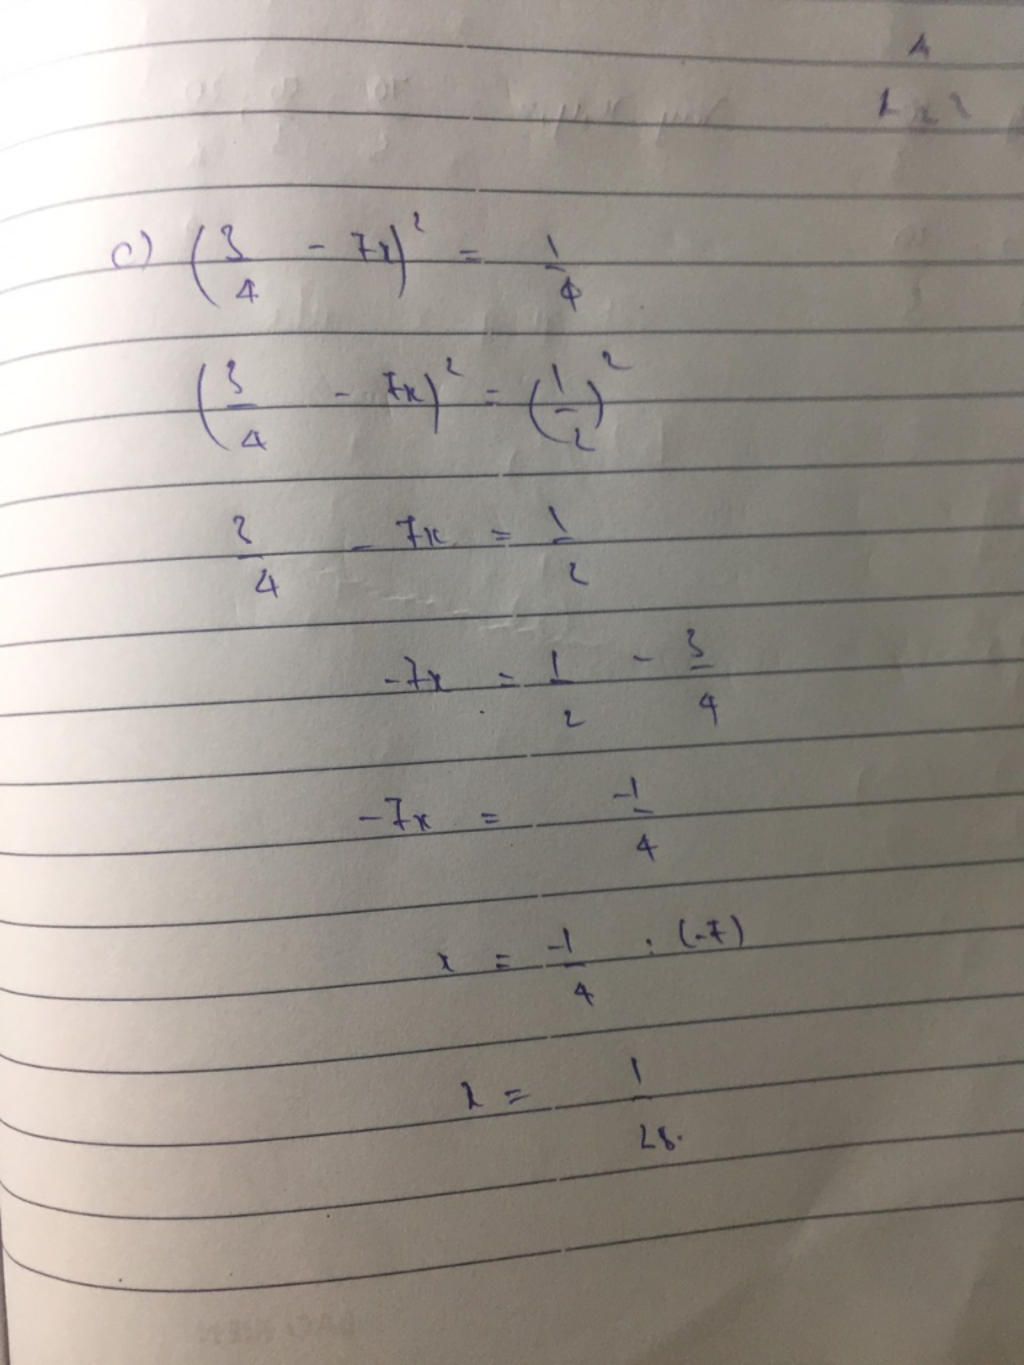 c) (3/4 - 7x)² = 1/4
(3/4 - 7x)² = (1/2)²
3/4 - 7x = 1/2
-7x = 1/2 - 3/4
-7x = -1/4
x = -1/4 : (-7)
x = 1/28.